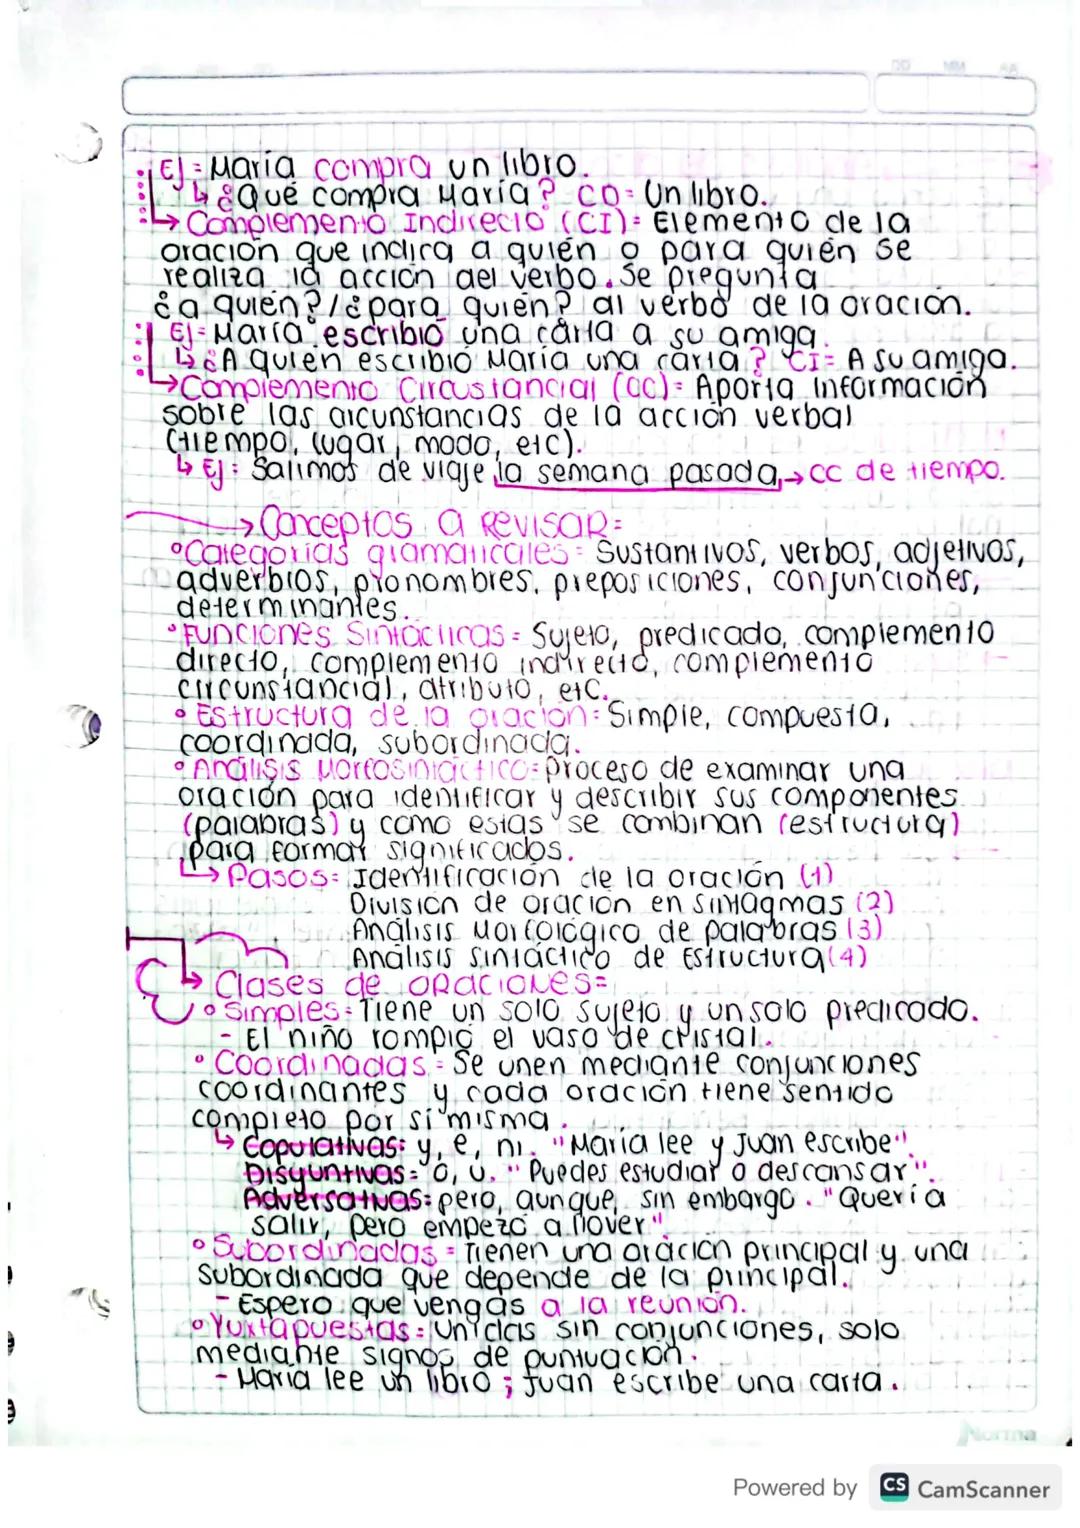 DD MM AA
Ej = María compra un libro.
↳ ¿Qué compra María? CD = Un libro.
→ Complemento Indirecto (CI) = Elemento de la
oración que indica a quién o para quién se
realiza la acción del verbo. Se pregunta
¿a quién? / ¿para quién? al verbo de la oración.
Ej = María escribió una carta a su amiga.
↳ ¿A quién escribió María una carta? CI = A su amiga.
→ Complemento Circustancial (CC) = Aporta información
sobre las circunstancias de la acción verbal
(tiempo, lugar, modo, etc).
↳ Ej: Salimos de viaje la semana pasada, → CC de tiempo.
→ Conceptos a revisar =
° Categorías gramaticales = Sustantivos, verbos, adjetivos,
adverbios, pronombres, preposiciones, conjunciones,
determinantes.
° Funciones Sintácticas = Sujeto, predicado, complemento
directo, complemento indirecto, complemento
circunstancial, atributo, etc.
° Estructura de la oración = Simple, compuesta,
coordinada, subordinada.
° Análisis Morfosintáctico = Proceso de examinar una
oración para identificar y describir sus componentes
(palabras) y como estas se combinan (estructura)
para formar significados.
↳ Pasos = Identificación de la oración (1)
División de oración en sintagmas (2)
Análisis Morfológico de palabras (3)
Análisis sintáctico de Estructura (4)
→ Clases de oraciones =
° Simples = Tiene un solo sujeto y un solo predicado.
- El niño rompió el vaso de cristal.
° Coordinadas = Se unen mediante conjunciones
coordinantes y cada oración tiene sentido
completo por sí misma.
↳ Copulativas: y, e, ni. "María lee y Juan escribe".
Disyuntivas = o, u. "Puedes estudiar o descansar".
Adversativas: pero, aunque, sin embargo. "Quería
salir, pero empezó a llover".
° Subordinadas = Tienen una oración principal y una
subordinada que depende de la principal.
- Espero que vengas a la reunión.
° Yuxtapuestas = Unidas sin conjunciones, solo
mediante signos de puntuación.
- María lee un libro ; Juan escribe una carta.
Norma
Powered by CS CamScanner